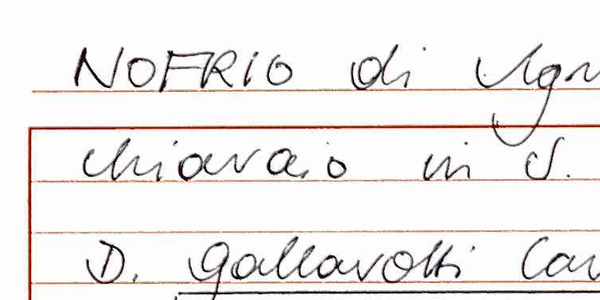 NOFRIO di
chiavaio in S.
D. Gallavotti Cav